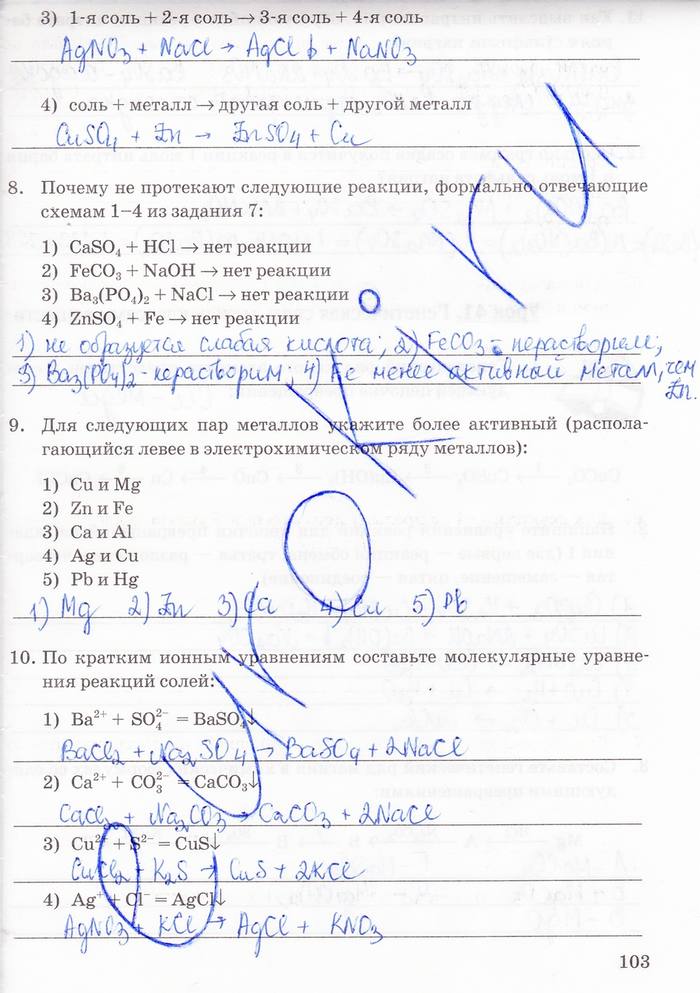 3) 1-я соль + 2-я соль → 3-я соль + 4-я соль
AgNO₃ + NaCl → AgCl↓ + NaNO₃
4) соль + металл → другая соль + другой металл
CuSO₄ + Zn → ZnSO₄ + Cu
8. Почему не протекают следующие реакции, формально отвечающие
схемам 1–4 из задания 7:
1) CaSO₄ + HCl → нет реакции
2) FeCO₃ + NaOH → нет реакции
3) Ba₃(PO₄)₂ + NaCl → нет реакции
4) ZnSO₄ + Fe → нет реакции
1) не образуется слабая кислота; 2) FeCO₃ - нерастворим;
3) Ba₃(PO₄)₂ - нерастворим; 4) Fe менее активный металл, чем
Zn.
9. Для следующих пар металлов укажите более активный (распола-
гающийся левее в электрохимическом ряду металлов):
1) Cu и Mg
2) Zn и Fe
3) Ca и Al
4) Ag и Cu
5) Pb и Hg
1) Mg 2) Zn 3) Ca 4) Cu 5) Pb
10. По кратким ионным уравнениям составьте молекулярные уравне-
ния реакций солей:
1) Ba²⁺ + SO₄²⁻ = BaSO₄↓
BaCl₂ + Na₂SO₄ → BaSO₄ + 2NaCl
2) Ca²⁺ + CO₃²⁻ = CaCO₃↓
CaCl₂ + Na₂CO₃ → CaCO₃ + 2NaCl
3) Cu²⁺ + S²⁻ = CuS↓
CuCl₂ + K₂S → CuS + 2KCl
4) Ag⁺ + Cl⁻ = AgCl↓
AgNO₃ + KCl → AgCl + KNO₃
103